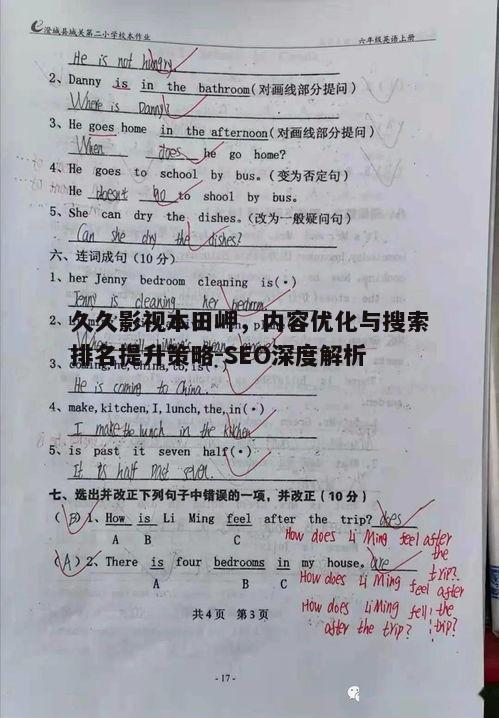 澄城县城关第二小学校本作业 六年级英语上册
He is not hungry
2、Danny is in the bathroom(对画线部分提问)
Where is Danny?
3、He goes home in the afternoon(对画线部分提问)
When does he go home?
4、He goes to school by bus。(变为否定句)
He doesn't go to shool by bus.
5、She can dry the dishes。(改为一般疑问句)
Can she dry the dishes?
六、连词成句(10分)
1、her Jenny bedroom cleaning is(·)
Jenny is cleaning her bedroom.
久久影视本田岬，内容优化与搜索
排名提升策略-SEO深度解析
He is coming to China.
4、make,kitchen,I,lunch,the,in(·)
I make the lunch in the kitchen
5、is past it seven half(·)
It is half past seven.
七、选出并改正下列句子中错误的一项，并改正(10分)
(B)1、How is Li Ming feel after the trip? does
A B C
How does Li Ming feel after
the
trip?
(A)2、There is four bedrooms in my house。are
A B C
How does Li Ming feel after
How does Li Ming fell the
after the trip? trip?
共4页 第3页
-17-